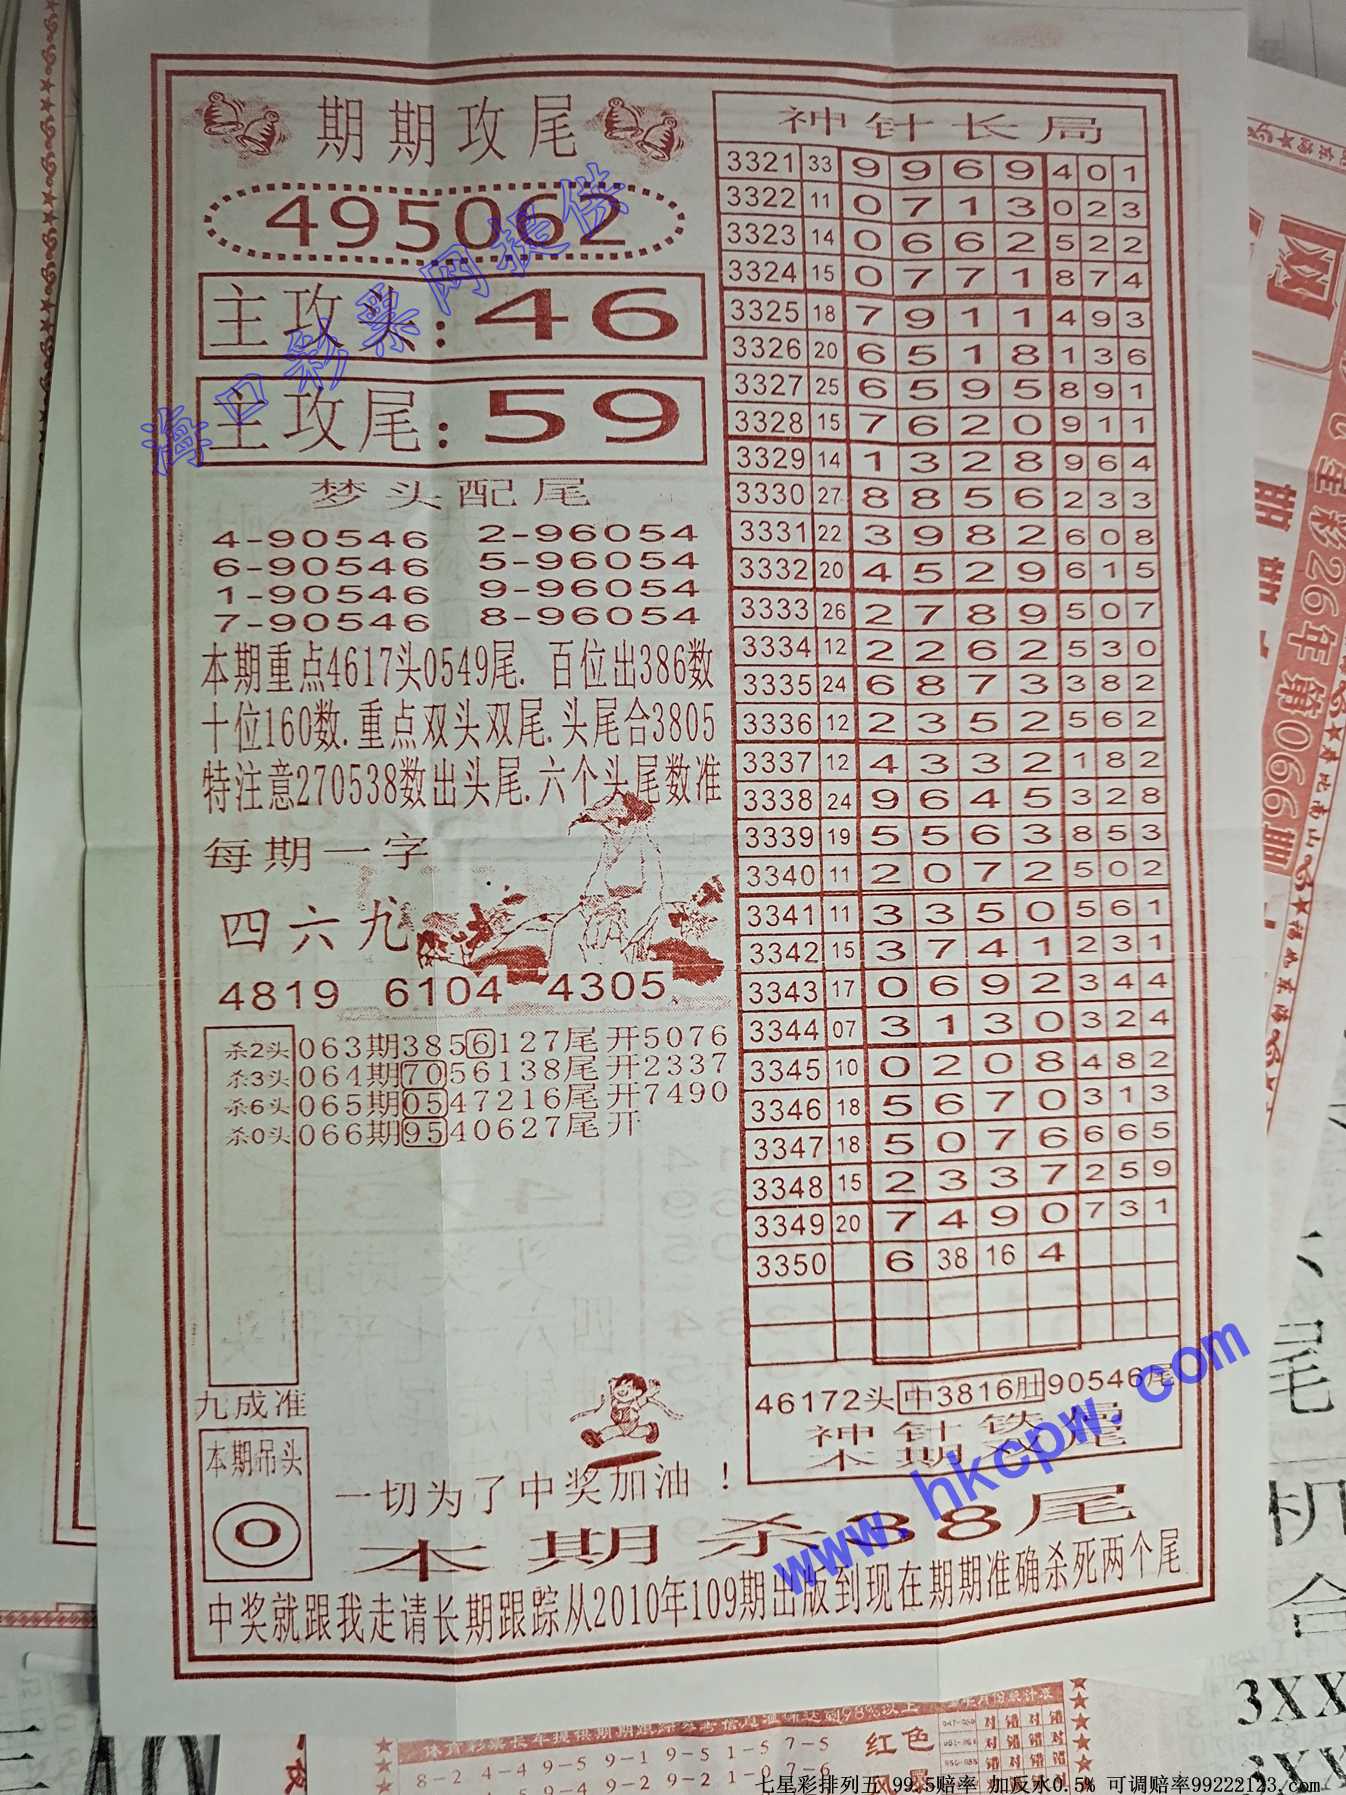 期期攻尾
495062
主攻头:46
主攻尾:59
梦头配尾
4-90546 2-96054
6-90546 5-96054
1-90546 9-96054
7-90546 8-96054
本期重点4617头0549尾. 百位出386数
十位160数.重点双头双尾.头尾合3805
特注意270538数出头尾.六个头尾数准
每期一字
四六九
4819 6104 4305
杀2头 063期3856127尾开5076
杀3头 064期7056138尾开2337
杀6头 065期0547216尾开7490
杀0头 066期9540627尾开
九成准
本期吊头
0
一切为了中奖加油！
神针长局
3321 33 9 9 6 9 4 0 1
3322 11 0 7 1 3 0 2 3
3323 14 0 6 6 2 5 2 2
3324 15 0 7 7 1 8 7 4
3325 18 7 9 1 1 4 9 3
3326 20 6 5 1 8 1 3 6
3327 25 6 5 9 5 8 9 1
3328 15 7 6 2 0 9 1 1
3329 14 1 3 2 8 9 6 4
3330 27 8 8 5 6 2 3 3
3331 22 3 9 8 2 6 0 8
3332 20 4 5 2 9 6 1 5
3333 26 2 7 8 9 5 0 7
3334 12 2 2 6 2 5 3 0
3335 24 6 8 7 3 3 8 2
3336 12 2 3 5 2 5 6 2
3337 12 4 3 3 2 1 8 2
3338 24 9 6 4 5 3 2 8
3339 19 5 5 6 3 8 5 3
3340 11 2 0 7 2 5 0 2
3341 11 3 3 5 0 5 6 1
3342 15 3 7 4 1 2 3 1
3343 17 0 6 9 2 3 4 4
3344 07 3 1 3 0 3 2 4
3345 10 0 2 0 8 4 8 2
3346 18 5 6 7 0 3 1 3
3347 18 5 0 7 6 6 6 5
3348 15 2 3 3 7 2 5 9
3349 20 7 4 9 0 7 3 1
3350 6 38 16 4
46172头中3816肚90546尾
神针铁局
本期双尾
本期杀38尾
中奖就跟我走请长期跟踪从2010年109期出版到现在期期准确杀死两个尾
海口彩票网提供
www.hkcpw.com
七星彩26年第066期
网
尾
机
合
3XX
3XX
红色
8-2 4-4 9-5 9-1 9-5 1-5 7-5
对 错 对 错
七星彩排列五 99.5赔率 加反水0.5% 可调赔率99222123.com